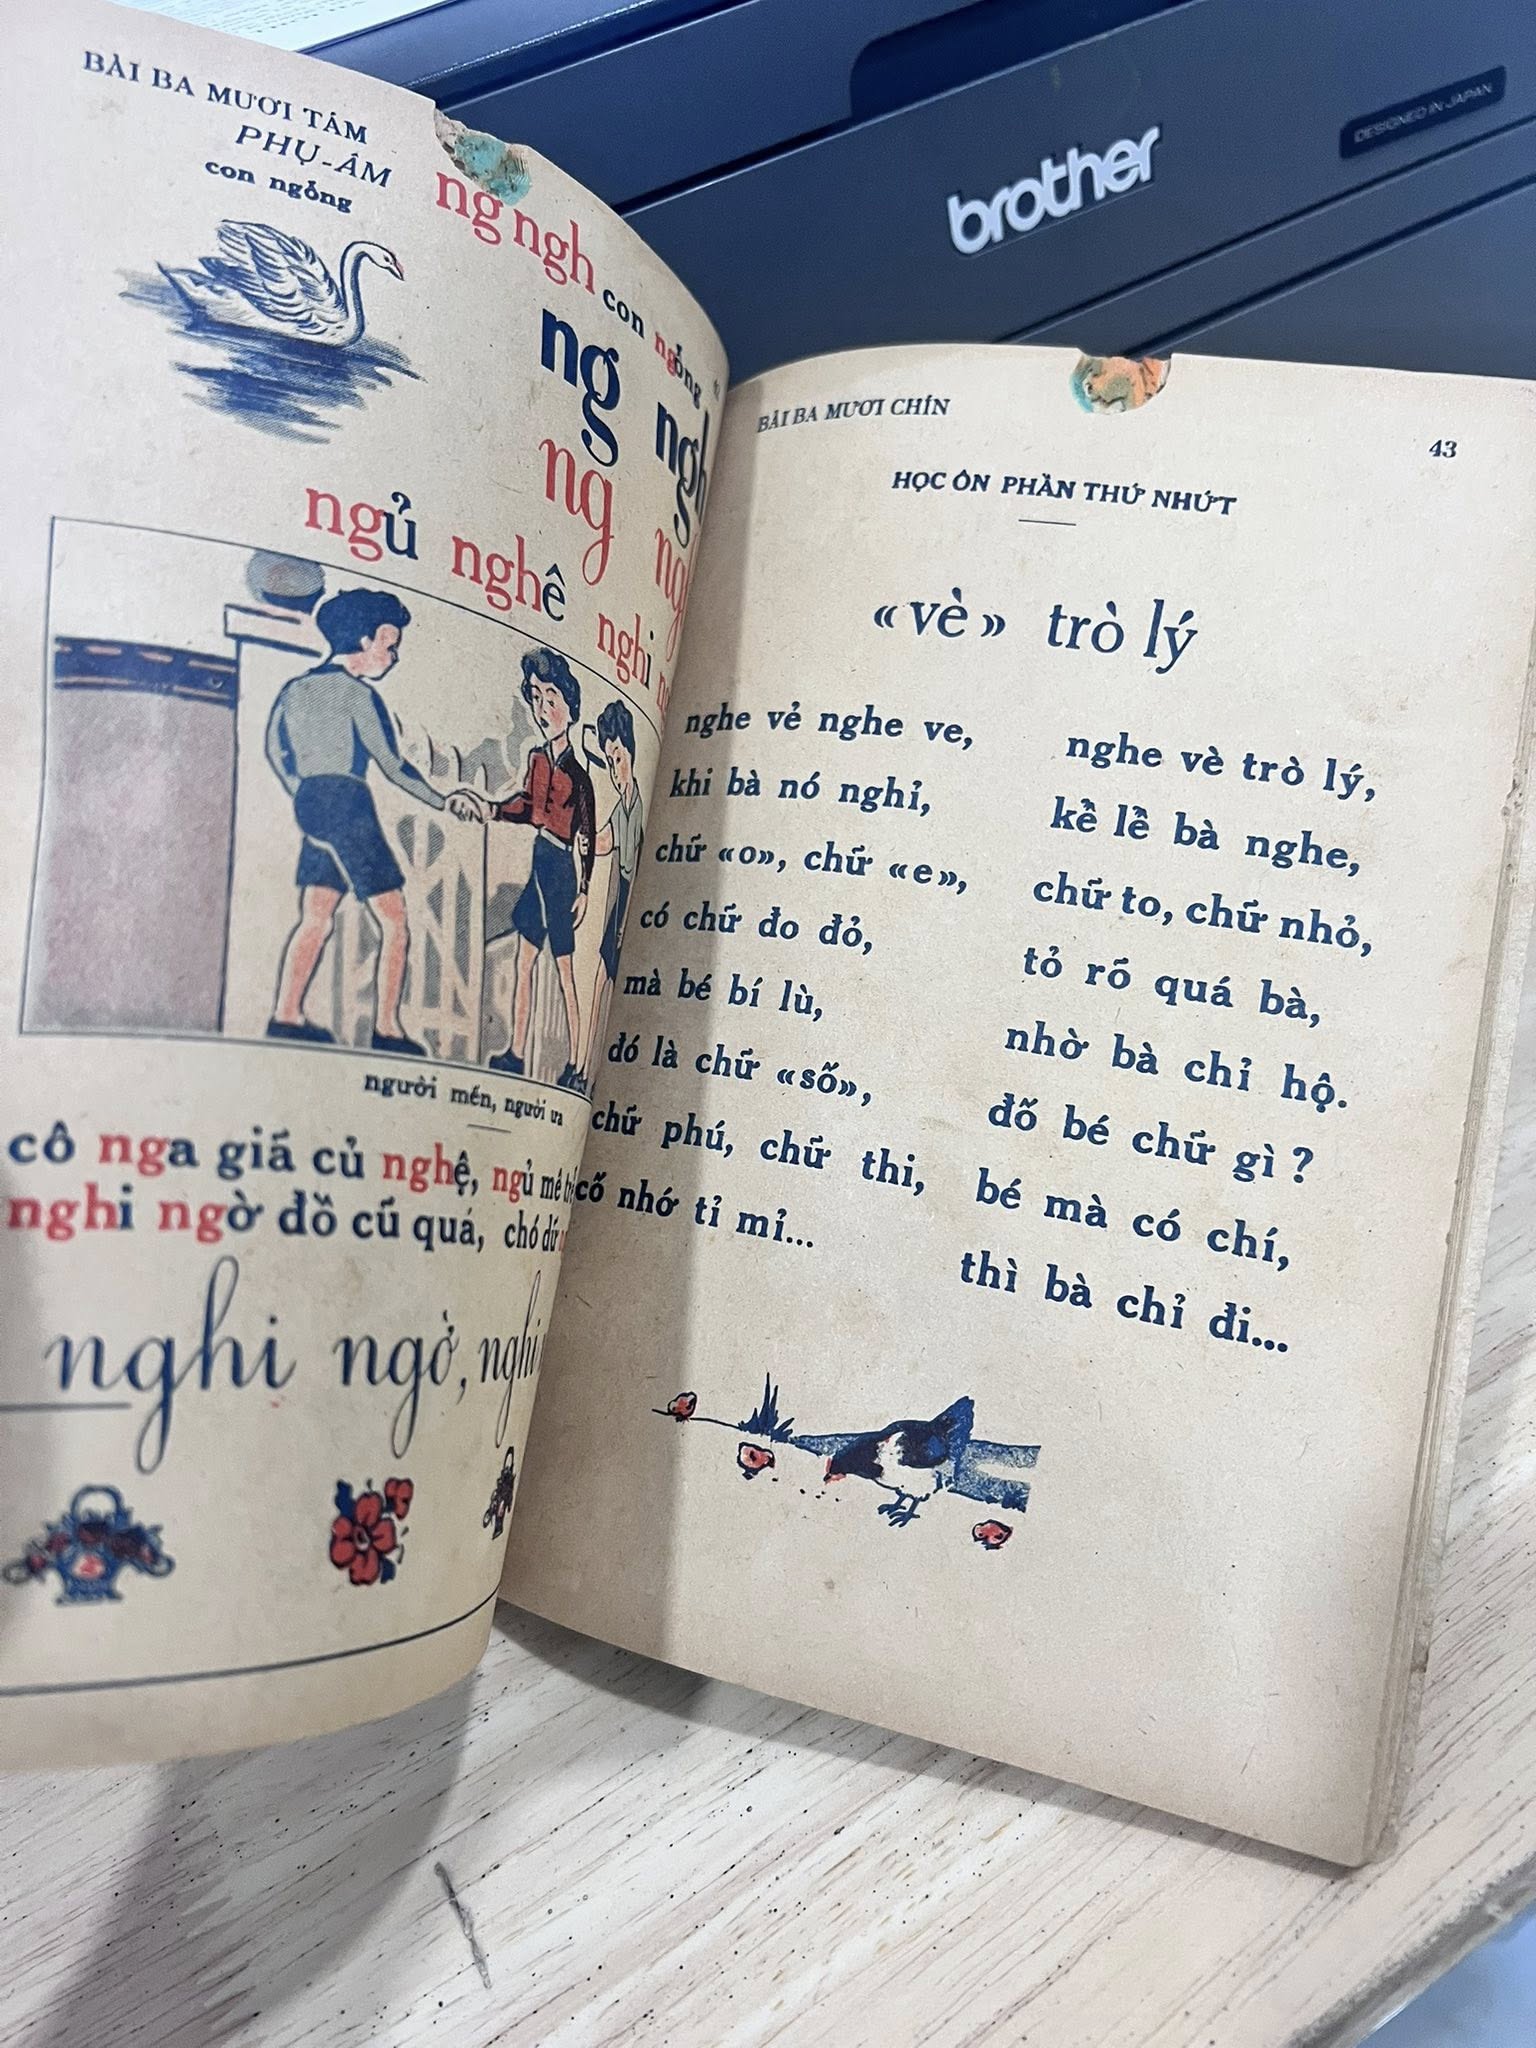 BÀI BA MƯƠI TÁM
PHỤ-ÂM
con ngỗng
ng ngh con ngỗng
ng ngh
ng
ngủ nghê nghi
người mến, người ưa
cô nga giã củ nghệ, ngủ mê
nghi ngờ đồ cũ quá, chó dữ
nghi ngờ, nghi
brother
DESIGNED IN JAPAN
BÀI BA MƯƠI CHÍN
43
HỌC ÔN PHẦN THỨ NHỨT
«vè» trò lý
nghe vẻ nghe ve,
nghe vè trò lý,
khi bà nó nghỉ,
kề lề bà nghe,
chữ «o», chữ «e»,
chữ to, chữ nhỏ,
có chữ đo đỏ,
tỏ rõ quá bà,
mà bé bí lù,
nhờ bà chỉ hộ.
đó là chữ «số»,
đố bé chữ gì ?
chữ phú, chữ thi,
bé mà có chí,
cố nhớ tỉ mỉ...
thì bà chỉ đi...